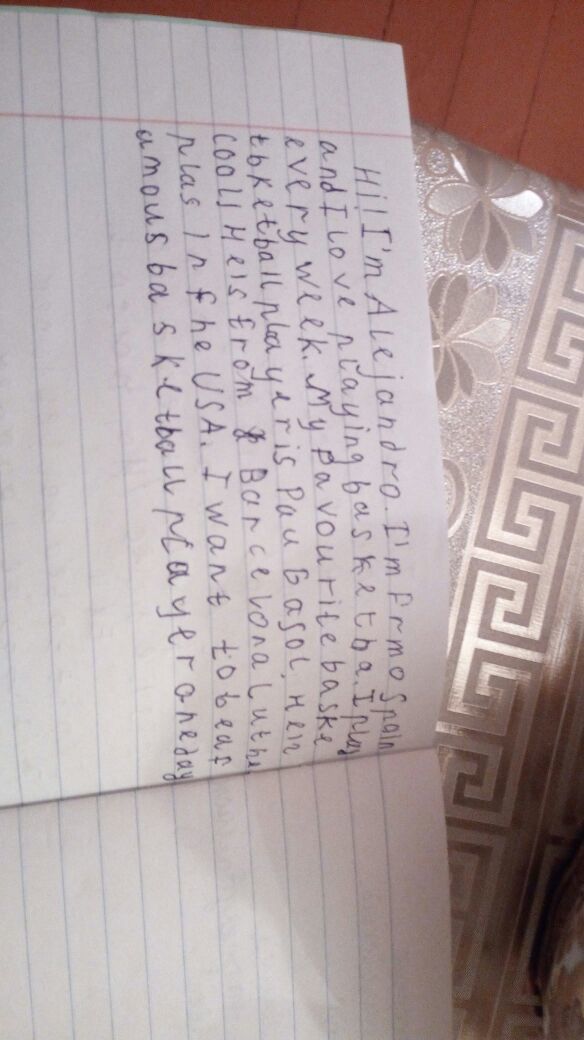 Hi! I'm Alejandro. I'm frmo Spain
and I love playing basketba. I play
every week. My favourite baske
tbketball player is Pau Gasol. He is
cool! He is from Barcelona but he
plas in the USA. I want to be a f
amous basketball player one day